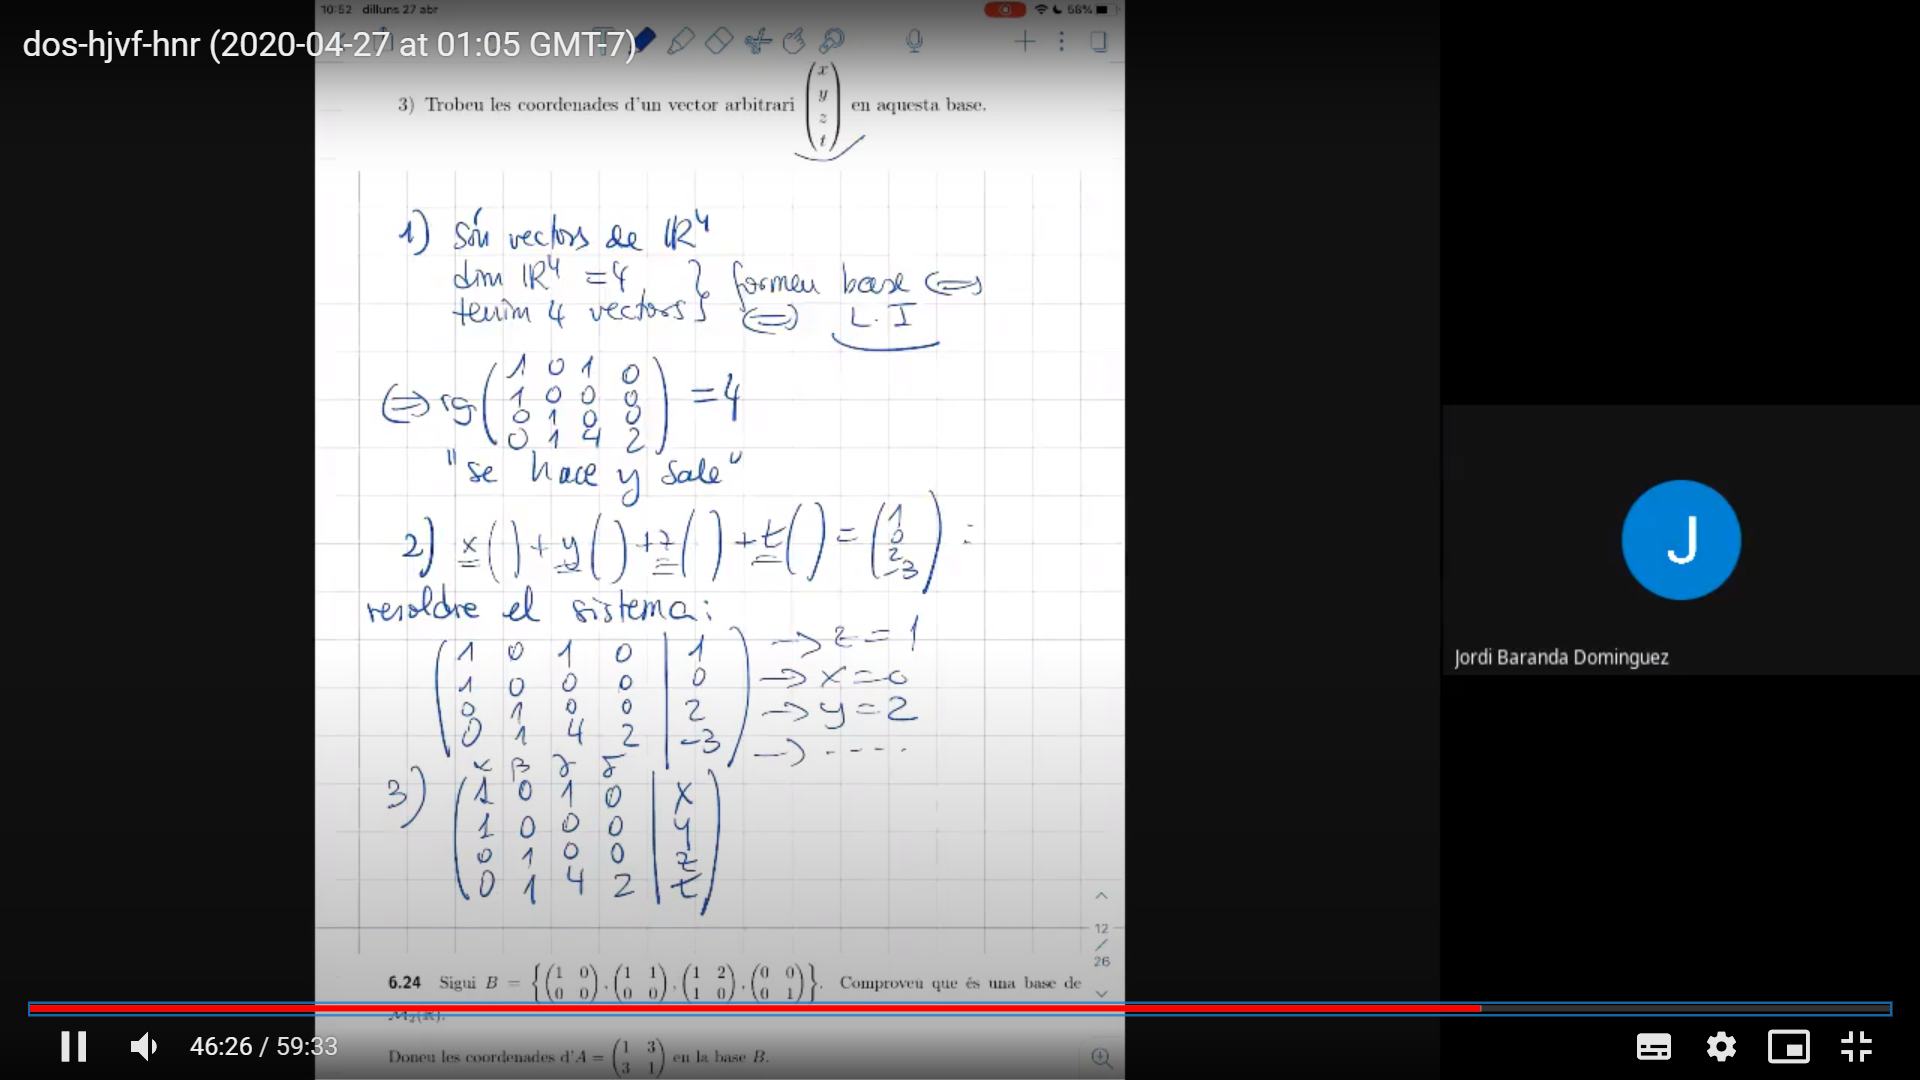 10:52 dilluns 27 abr
56%
dos-hjvf-hnr (2020-04-27 at 01:05 GMT-7)
3) Trobeu les coordenades d'un vector arbitrari (x y z t) en aquesta base.
1) Són vectors de ℝ⁴
dim ℝ⁴ = 4 } formen base ⟺
tenim 4 vectors } ⟺ L.I
⟺ rg ( 1 0 1 0
1 0 0 0
0 1 0 0
0 1 4 2 ) = 4
"se hace y sale"
2) x( ) + y( ) + z( ) + t( ) = (1 0 2 -3) :
resoldre el sistema:
( 1 0 1 0 | 1 ) → z = 1
( 1 0 0 0 | 0 ) → x = 0
( 0 1 0 0 | 2 ) → y = 2
( 0 1 4 2 | -3 ) → ----
α β γ δ
3) ( 1 0 1 0 | x )
( 1 0 0 0 | y )
( 0 1 0 0 | z )
( 0 1 4 2 | t )
12
/
26
6.24 Sigui B = {(1 0 0 0), (1 1 0 0), (1 2 1 0), (0 0 0 1)}. Comproveu que és una base de
M₂(ℝ).
Doneu les coordenades d'A = (1 3 3 1) en la base B.
J
Jordi Baranda Dominguez
46:26 / 59:33